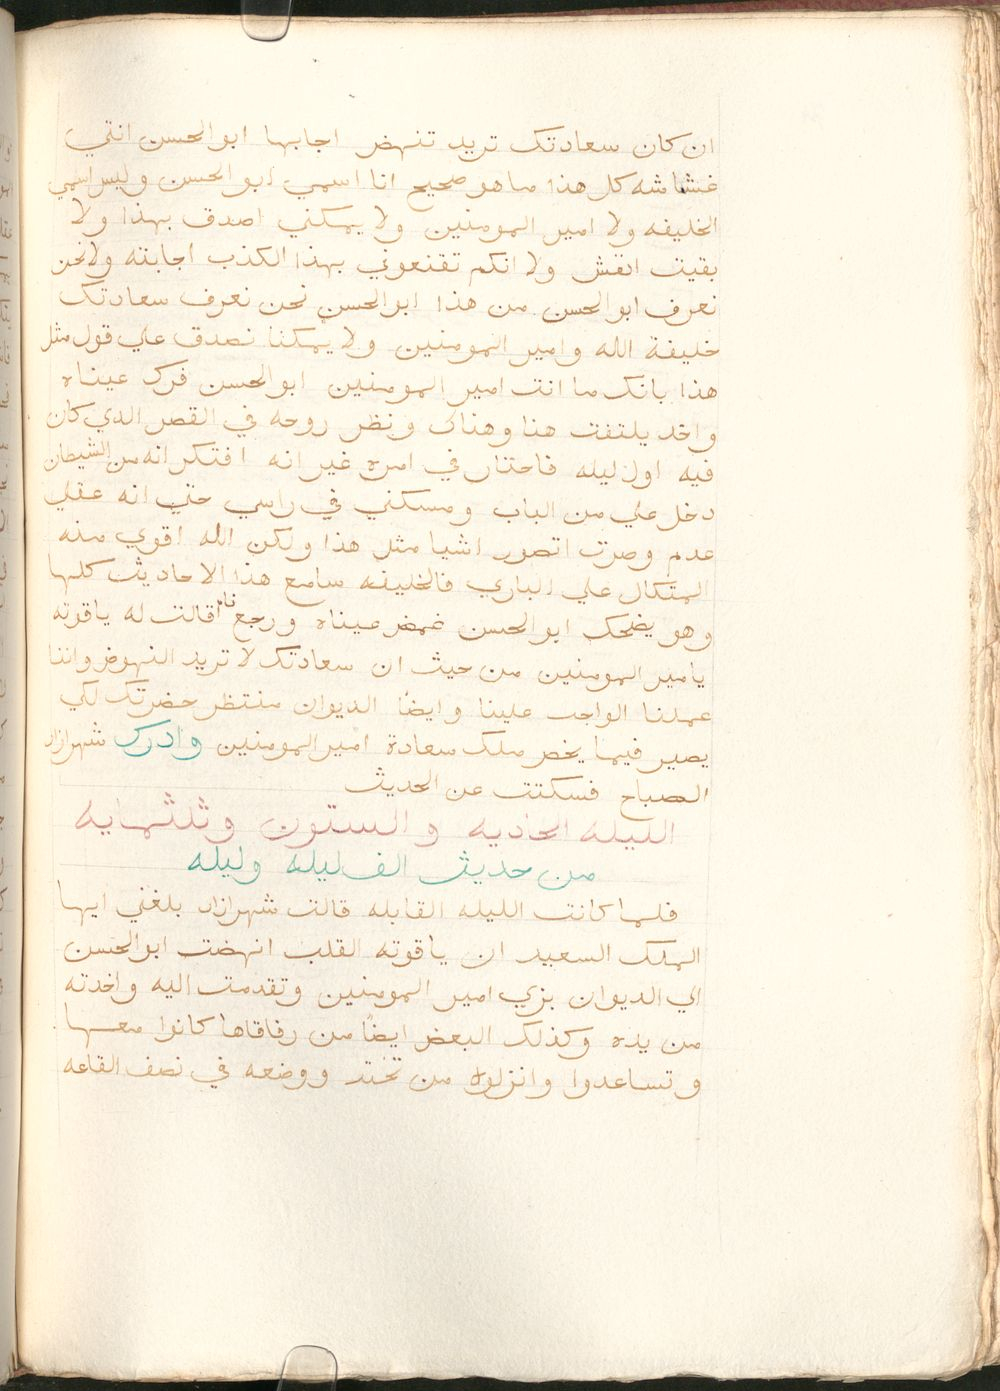 ان كان سعادتك تريد تنهض اجابها ابو الحسن انتي
غشاشه كل هذا ما هو صحيح انا اسمي ابو الحسن وليس اسمي
الخليفه ولا امير المومنين ولا يمكني اصدق بهذا ولا
بقيت انغش ولا انكم تقنعوني بهذا الكذب اجابته ولا نحن
نعرف ابو الحسن من هذا ابو الحسن نحن نعرف سعادتك
خليفة الله وامير المومنين ولا يمكننا نصدق علي قول مثل
هذا بانك ما انت امير المومنين ابو الحسن فرك عيناه
واخد يلتفت هنا وهناك ونظر روحه في القصر الدي كان
فيه اول ليله فاحتار في امره غير انه افتكر انه من الشيطان
دخل علي من الباب ومسكني في راسي حتي انه عقلي
عدم وصرت اتصور اشيا مثل هذا ولكن الله اقوي منه
المتكال علي الباري فالخليفه سامع هذا الاحاديث كلها
وهو يضحك ابو الحسن غمض عيناه ورجع نام قالت له ياقوته
يامير المومنين من حيث ان سعادتك لا تريد النهوض واننا
عملنا الواجب علينا وايضا الديوان منتظر حضرتك لكي
يصير فيما يخص ملك سعادة امير المومنين وادرك شهرازاد
الصباح فسكتت عن الحديث
الليله الحاديه والستون وثلثمايه
من حديث الف ليله وليله
فلما كانت الليله القابله قالت شهرازاد بلغني ايها
الملك السعيد ان ياقوته القلب انهضت ابو الحسن
الي الديوان بزي امير المومنين وتقدمت اليه واخدته
من يده وكذلك البعض ايضًا من رفاقاها كانوا معها
وتساعدوا وانزلوه من تخته ووضعه في نصف القاعه